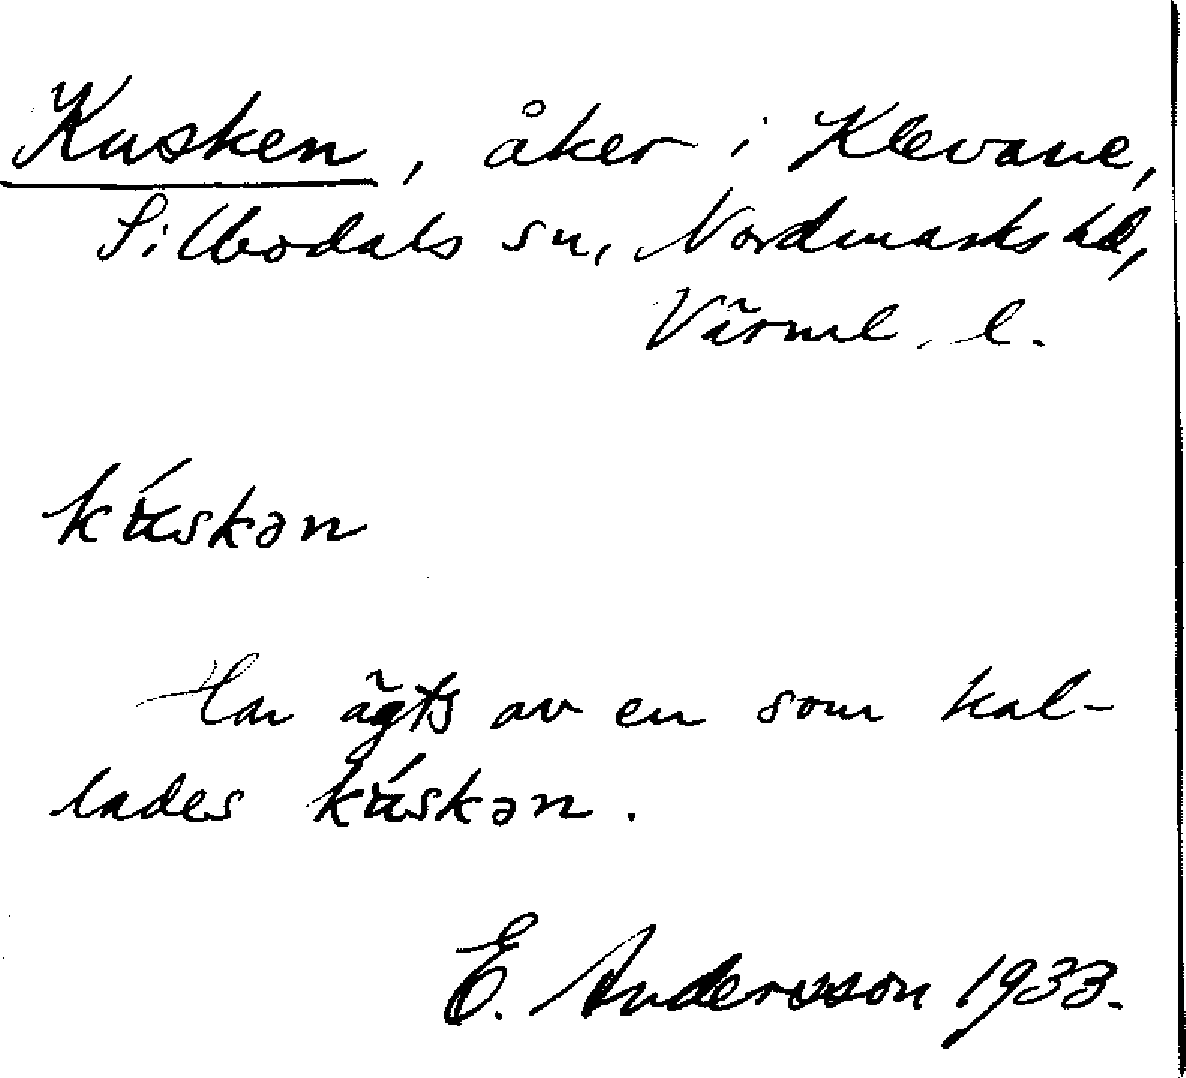 Kusken, åker i Klevane,
Silbodals sn, Nordmarks hd,
Värml. l.
kúskən
Har ägts av en som kal-
lades kúskən.
E. Andersson 1933.